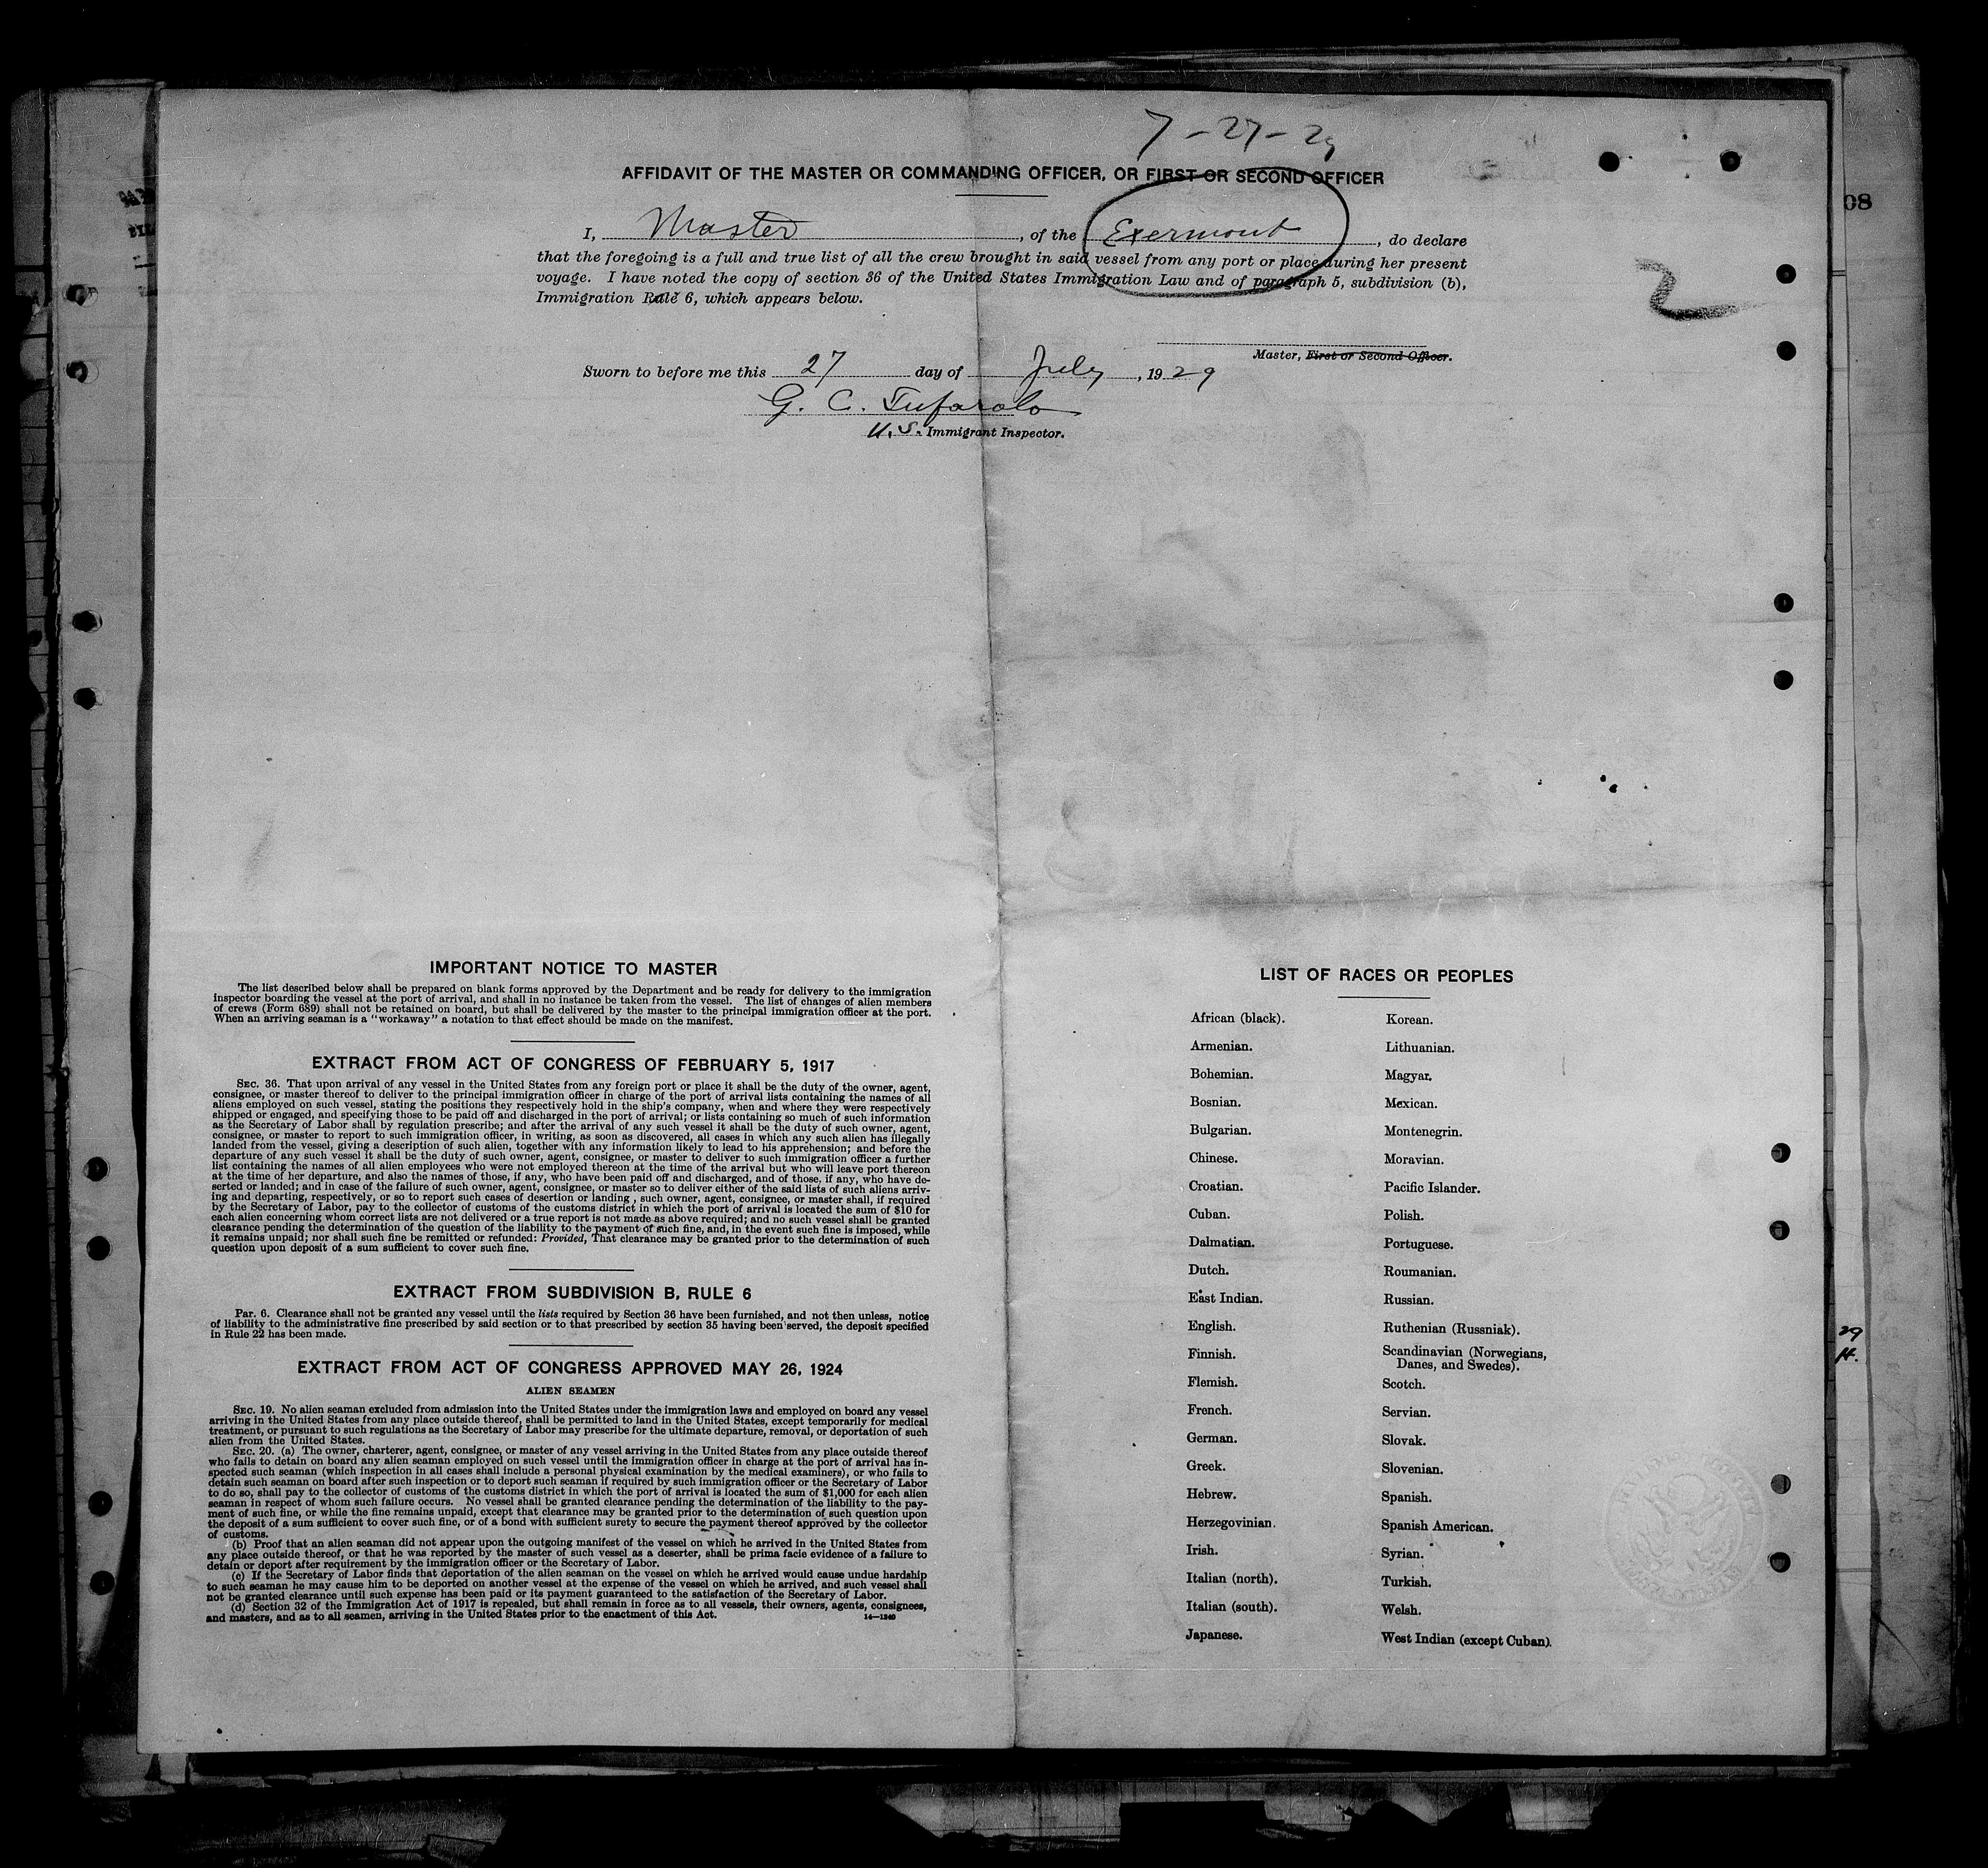 7-27-29
AFFIDAVIT OF THE MASTER OR COMMANDING OFFICER, OR FIRST OR SECOND OFFICER
I, Master, of the Exermont, do declare
that the foregoing is a full and true list of all the crew brought in said vessel from any port or place during her present
voyage. I have noted the copy of section 36 of the United States Immigration Law and of paragraph 5, subdivision (b),
Immigration Rule 6, which appears below.
2
Master, First or Second Officer.
Sworn to before me this 27 day of July, 1929
G. C. Tufarolo
U.S. Immigrant Inspector.
08
IMPORTANT NOTICE TO MASTER
The list described below shall be prepared on blank forms approved by the Department and be ready for delivery to the immigration
inspector boarding the vessel at the port of arrival, and shall in no instance be taken from the vessel. The list of changes of alien members
of crews (Form 689) shall not be retained on board, but shall be delivered by the master to the principal immigration officer at the port.
When an arriving seaman is a "workaway" a notation to that effect should be made on the manifest.
EXTRACT FROM ACT OF CONGRESS OF FEBRUARY 5, 1917
SEC. 36. That upon arrival of any vessel in the United States from any foreign port or place it shall be the duty of the owner, agent,
consignee, or master thereof to deliver to the principal immigration officer in charge of the port of arrival lists containing the names of all
aliens employed on such vessel, stating the positions they respectively hold in the ship's company, when and where they were respectively
shipped or engaged, and specifying those to be paid off and discharged in the port of arrival; or lists containing so much of such information
as the Secretary of Labor shall by regulation prescribe; and after the arrival of any such vessel it shall be the duty of such owner, agent,
consignee, or master to report to such immigration officer, in writing, as soon as discovered, all cases in which any such alien has illegally
landed from the vessel, giving a description of such alien, together with any information likely to lead to his apprehension; and before the
departure of any such vessel it shall be the duty of such owner, agent, consignee, or master to deliver to such immigration officer a further
list containing the names of all alien employees who were not employed thereon at the time of the arrival but who will leave port thereon
at the time of her departure, and also the names of those, if any, who have been paid off and discharged, and of those, if any, who have de-
serted or landed; and in case of the failure of such owner, agent, consignee, or master so to deliver either of the said lists of such aliens arriv-
ing and departing, respectively, or so to report such cases of desertion or landing , such owner, agent, consignee, or master shall, if required
by the Secretary of Labor, pay to the collector of customs of the customs district in which the port of arrival is located the sum of $10 for
each alien concerning whom correct lists are not delivered or a true report is not made as above required; and no such vessel shall be granted
clearance pending the determination of the question of the liability to the payment of such fine, and, in the event such fine is imposed, while
it remains unpaid; nor shall such fine be remitted or refunded: Provided, That clearance may be granted prior to the determination of such
question upon deposit of a sum sufficient to cover such fine.
EXTRACT FROM SUBDIVISION B, RULE 6
Par. 6. Clearance shall not be granted any vessel until the lists required by Section 36 have been furnished, and not then unless, notice
of liability to the administrative fine prescribed by said section or to that prescribed by section 35 having been served, the deposit specified
in Rule 22 has been made.
EXTRACT FROM ACT OF CONGRESS APPROVED MAY 26, 1924
ALIEN SEAMEN
SEC. 19. No alien seaman excluded from admission into the United States under the immigration laws and employed on board any vessel
arriving in the United States from any place outside thereof, shall be permitted to land in the United States, except temporarily for medical
treatment, or pursuant to such regulations as the Secretary of Labor may prescribe for the ultimate departure, removal, or deportation of such
alien from the United States.
SEC. 20. (a) The owner, charterer, agent, consignee, or master of any vessel arriving in the United States from any place outside thereof
who fails to detain on board any alien seaman employed on such vessel until the immigration officer in charge at the port of arrival has in-
spected such seaman (which inspection in all cases shall include a personal physical examination by the medical examiners), or who fails to
detain such seaman on board after such inspection or to deport such seaman if required by such immigration officer or the Secretary of Labor
to do so, shall pay to the collector of customs of the customs district in which the port of arrival is located the sum of $1,000 for each alien
seaman in respect of whom such failure occurs. No vessel shall be granted clearance pending the determination of the liability to the pay-
ment of such fine, or while the fine remains unpaid, except that clearance may be granted prior to the determination of such question upon
the deposit of a sum sufficient to cover such fine, or of a bond with sufficient surety to secure the payment thereof approved by the collector
of customs.
(b) Proof that an alien seaman did not appear upon the outgoing manifest of the vessel on which he arrived in the United States from
any place outside thereof, or that he was reported by the master of such vessel as a deserter, shall be prima facie evidence of a failure to
detain or deport after requirement by the immigration officer or the Secretary of Labor.
(c) If the Secretary of Labor finds that deportation of the alien seaman on the vessel on which he arrived would cause undue hardship
to such seaman he may cause him to be deported on another vessel at the expense of the vessel on which he arrived, and such vessel shall
not be granted clearance until such expense has been paid or its payment guaranteed to the satisfaction of the Secretary of Labor.
(d) Section 32 of the Immigration Act of 1917 is repealed, but shall remain in force as to all vessels, their owners, agents, consignees,
and masters, and as to all seamen, arriving in the United States prior to the enactment of this Act.
14—1240
LIST OF RACES OR PEOPLES
African (black).
Armenian.
Bohemian.
Bosnian.
Bulgarian.
Chinese.
Croatian.
Cuban.
Dalmatian.
Dutch.
East Indian.
English.
Finnish.
Flemish.
French.
German.
Greek.
Hebrew.
Herzegovinian.
Irish.
Italian (north).
Italian (south).
Japanese.
Korean.
Lithuanian.
Magyar.
Mexican.
Montenegrin.
Moravian.
Pacific Islander.
Polish.
Portuguese.
Roumanian.
Russian.
Ruthenian (Russniak).
Scandinavian (Norwegians,
Danes, and Swedes).
Scotch.
Servian.
Slovak.
Slovenian.
Spanish.
Spanish American.
Syrian.
Turkish.
Welsh.
West Indian (except Cuban).
29